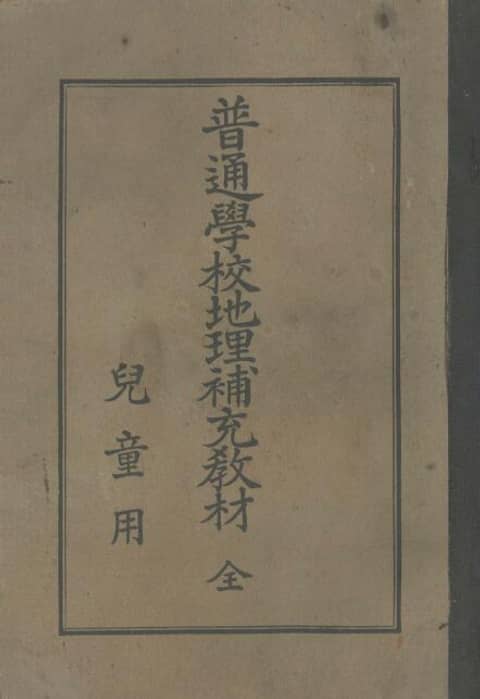 普通學校地理補充敎材 全
兒童用